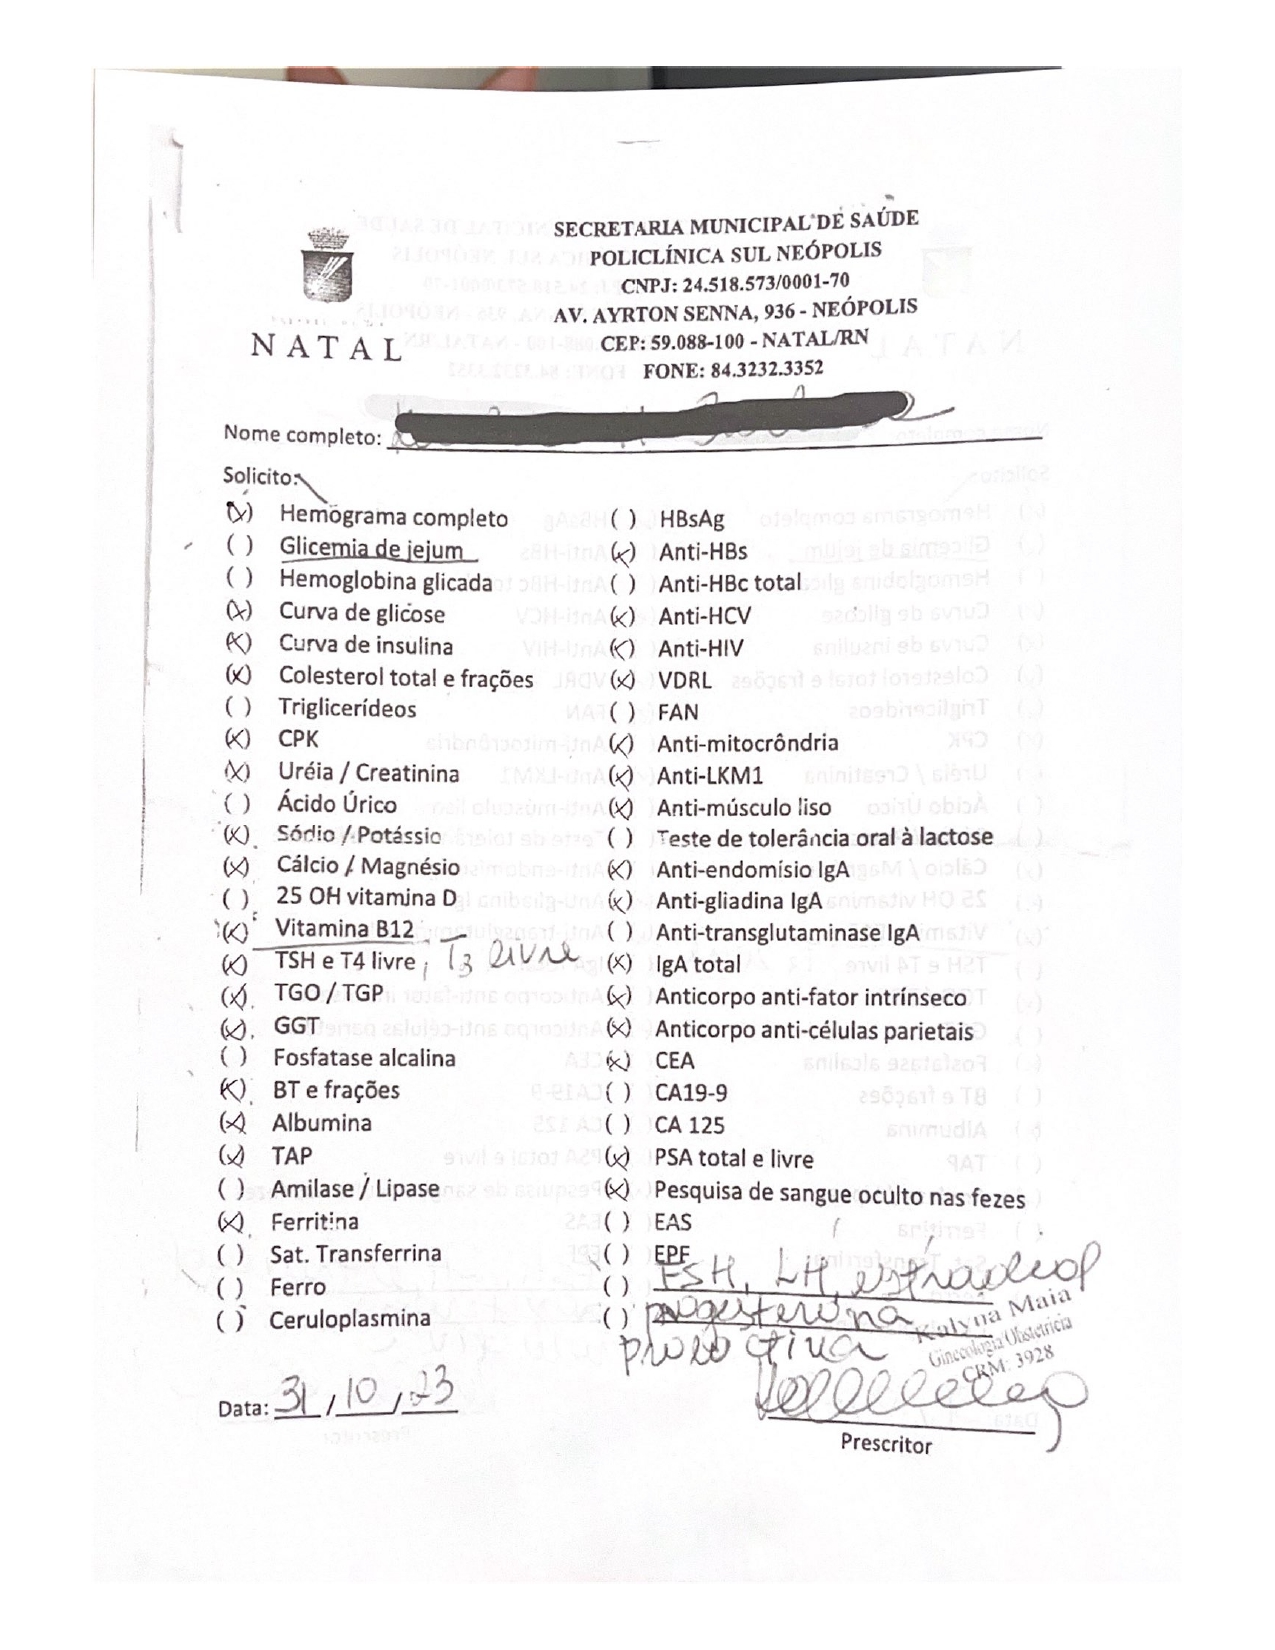 SECRETARIA MUNICIPAL DE SAÚDE
POLICLÍNICA SUL NEÓPOLIS
CNPJ: 24.518.573/0001-70
AV. AYRTON SENNA, 936 - NEÓPOLIS
CEP: 59.088-100 - NATAL/RN
FONE: 84.3232.3352
NATAL
Nome completo:
Solicito:
(x) Hemograma completo
( ) Glicemia de jejum
( ) Hemoglobina glicada
(x) Curva de glicose
(x) Curva de insulina
(x) Colesterol total e frações
( ) Triglicerídeos
(x) CPK
(x) Uréia / Creatinina
( ) Ácido Úrico
(x) Sódio / Potássio
(x) Cálcio / Magnésio
( ) 25 OH vitamina D
(x) Vitamina B12
(x) TSH e T4 livre, T3 livre
(x) TGO / TGP
(x) GGT
( ) Fosfatase alcalina
(x) BT e frações
(x) Albumina
(x) TAP
( ) Amilase / Lipase
(x) Ferritina
( ) Sat. Transferrina
( ) Ferro
( ) Ceruloplasmina
( ) HBsAg
(x) Anti-HBs
( ) Anti-HBc total
(x) Anti-HCV
(x) Anti-HIV
(x) VDRL
( ) FAN
(x) Anti-mitocrôndria
(x) Anti-LKM1
(x) Anti-músculo liso
( ) Teste de tolerância oral à lactose
(x) Anti-endomísio IgA
(x) Anti-gliadina IgA
( ) Anti-transglutaminase IgA
(x) IgA total
(x) Anticorpo anti-fator intrínseco
(x) Anticorpo anti-células parietais
(x) CEA
( ) CA19-9
( ) CA 125
(x) PSA total e livre
(x) Pesquisa de sangue oculto nas fezes
( ) EAS
( ) EPF
( ) FSH, LH, estradiol
( ) progesterona
prolactina
Kalyna Maia
Ginecologia/Obstetrícia
CRM: 3928
Data: 31/10/23
Prescritor